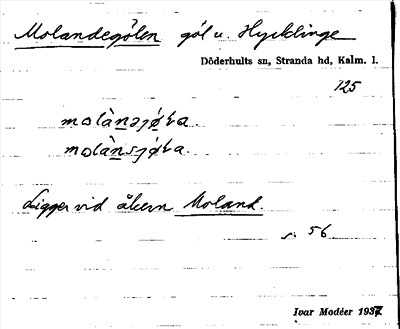 Molandegölen göl u. Hycklinge
Döderhults sn, Stranda hd, Kalm. l.
125
molànəjø̀ka.
molànsjø̀ka.
Ligger vid åkern Moland.
s. 56
Ivar Modéer 1937.